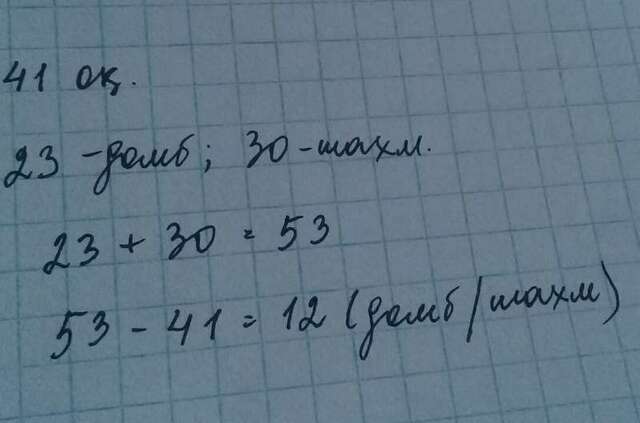 41 оқ.
23 - домб; 30 - шахм.
23 + 30 = 53
53 - 41 = 12 (домб/шахм)